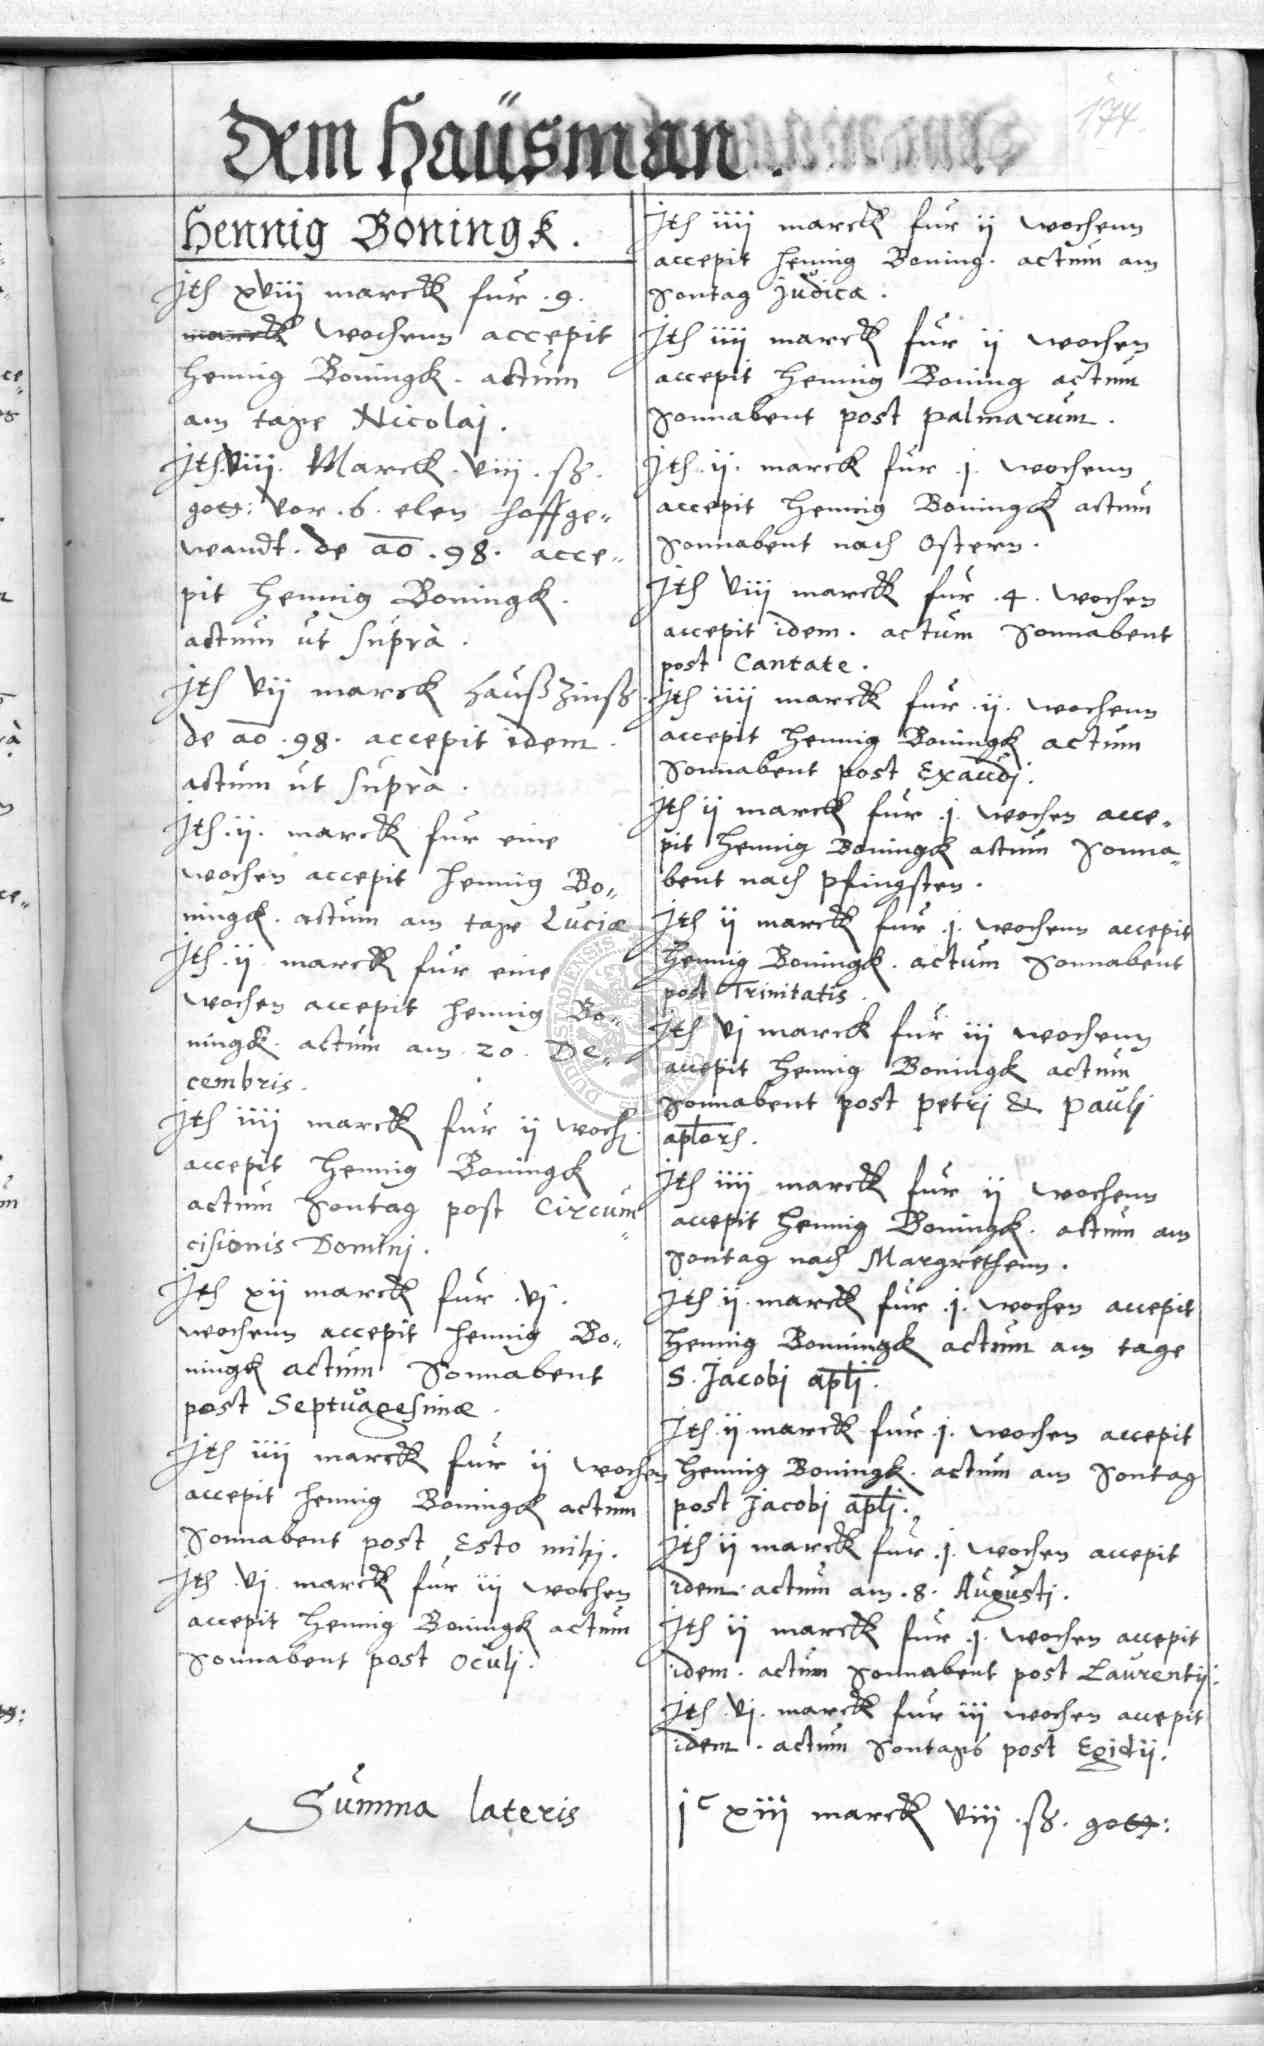 174.
Dem Haüsman.
Hennig Boningk.
Ith xviii marck fur .9.
marck wochenn accepit
Hennig Boningk. actum
am tage Nicolaj.
Ith. viii. Marck. viii. sß.
gott: vor .6. elen hoffge„
wandt. de ao .98. acce„
pit Hennig Boningk.
actum ut suprà.
Ith vij marck haußzinß
de ao .98. accepit idem.
actum ut suprà.
Ith. ij. marck fur eine
wochen accepit Hennig Bo„
ningk. actum am tage Luciæ
Ith. ij. marck fur eine
wochen accepit Hennig Bo„
ningk. actum am .20. De„
cembris.
Ith iiij marck fur ij woch.
accepit Hennig Boningk
actum Sontag post Circum„
cisionis Dominj.
Ith xij marck fur .vj.
wochenn accepit Hennig Bo„
ningk actum Sonnabent
post Septuagesimæ.
Ith iiij marck fur ij wochen
accepit Hennig Boningk actum
Sonnabent post Esto mihj.
Ith .vj. marck fur iij wochen
accepit Hennig Boningk actum
Sonnabent post Oculj.
Ith iiij marck fur ij wochenn
accepit Hennig Boning. actum am
Sontag Judica.
Ith iiij marck fur ij wochen
accepit Hennig Boning actum
Sonnabent post palmarum.
Ith .ij. marck fur .j. wochenn
accepit Hennig Boningk actum
Sonnabent nach Ostern.
Ith viij marck fur .4. wochen
accepit idem. actum Sonnabent
post Cantate.
Ith iiij marck fur .ij. wochenn
accepit Hennig Boningk actum
Sonnabent post Exaudj.
Ith ij marck fur .j. wochen acce„
pit Hennig Boningk actum Sonna„
bent nach pfingsten.
Ith ij marck fur .j. wochenn accepit
Hennig Boningk. actum Sonnabent
post Trinitatis.
Ith vj marck fur iij wochenn
accepit Hennig Boningk actum
Sonnabent post petrj & paulj
aplorh.
Ith iiij marck fur ij wochenn
accepit Hennig Boningk. actum am
Sontag nach Margrethenn.
Ith ij. marck fur .j. wochen accepit
Hennig Bonningk actum am tage
S. Jacobj aplj.
Ith ij marck fur .j. wochen accepit
Hennig Boningk. actum am Sontag
post Jacobj aplj.
Ith ij marck fur .j. wochen accepit
idem. actum am .8. Augustj.
Ith ij marck fur .j. wochen accepit
idem. actum Sonnabent post Laurentij.
Ith .vj. marck fur iij wochen accepit
idem. actum Sontags post Egidij.
Summa lateris
jc xiij marck viij .sß. gott: